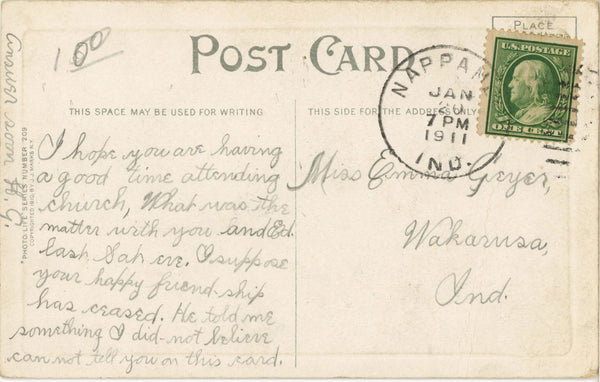 1.00
POST CARD
PLACE
U.S. POSTAGE
ONE CENT
NAPPAN
JAN
20
7 PM
1911
IND.
THIS SPACE MAY BE USED FOR WRITING
THIS SIDE FOR THE ADDRESS ONLY
I hope you are having
a good time attending
church, What was the
matter with you and Ed.
last Sat eve. I suppose
your happy friend ship
has ceased. He told me
something I did not believe
can not tell you on this card.
Answer soon H.G.
"PHOTO LIFE" SERIES NUMBER 209
COPYRIGHTED 1910, BY J. MARKS N.Y.
Miss Emma Geyer,
Wakarusa,
Ind.